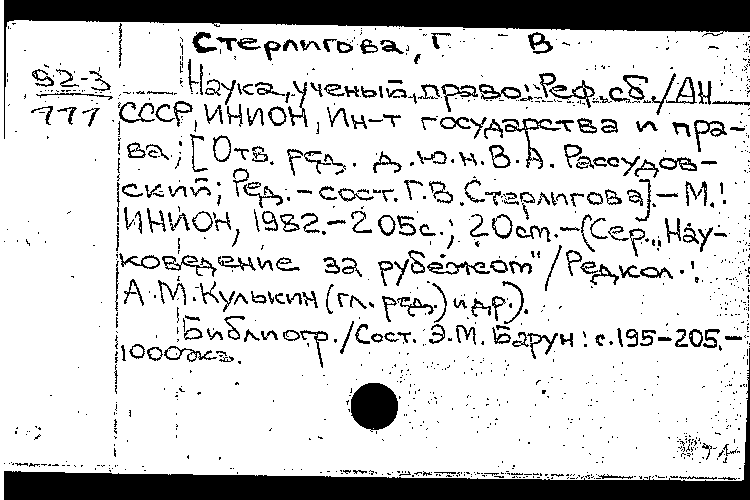 Стерлигова, Г В
92-3
111
Наука, ученый, право: Реф. сб./АН
СССР, ИНИОН, Ин-т государства и пра-
ва; [Отв. ред. д.ю.н. В.А. Рассудов-
ский; Ред.-сост. Г.В. Стерлигова].- М.:
ИНИОН, 1982.- 205с.; 20см.-(Сер. „Нау-
коведение за рубежом"/Редкол.:
А.М. Кулькин (гл. ред.) и др.).
Библиогр./Сост. Э.М. Барун: с.195-205.-
1000экз.